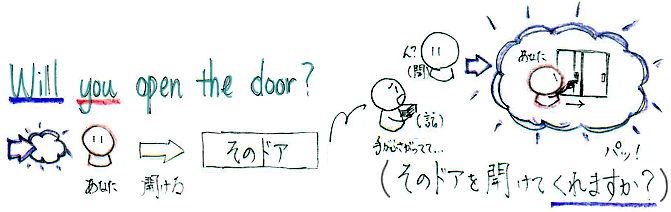 Will you open the door?
そのドア
あなた 開ける
ん?
(聞)
(話)
手がふさがってて...
あなた
パッ!
(そのドアを開けてくれますか?)